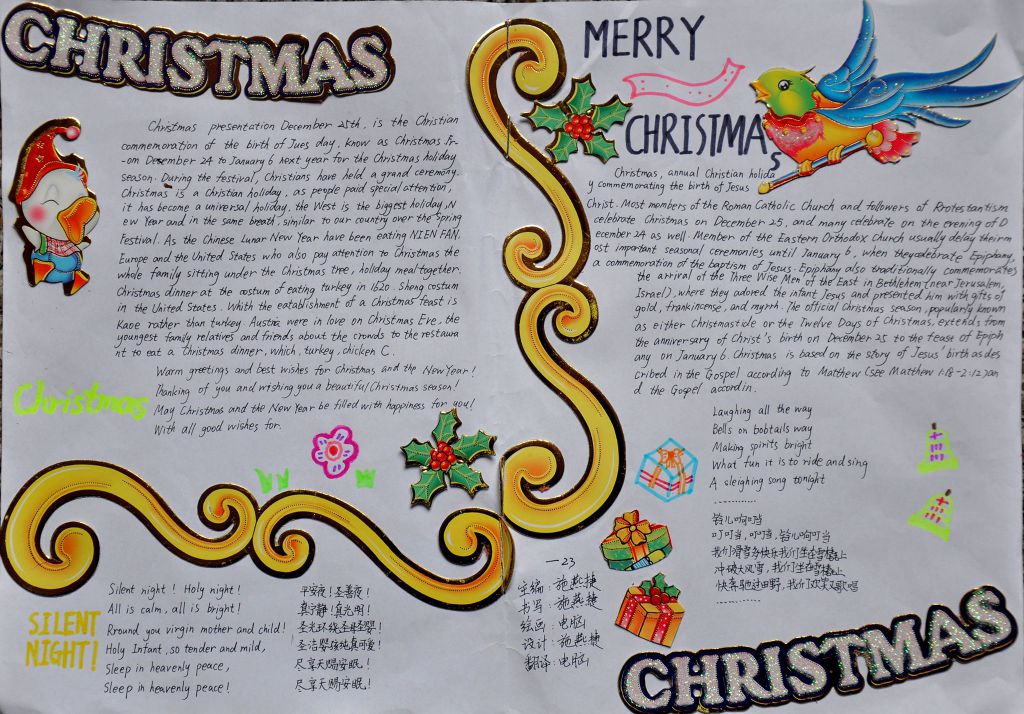 CHRISTMAS
Christmas presentation December 25th, is the Christian
commemoration of the birth of Jues day, know as Christmas Fr-
-om Desember 24 to January 6 next year for the Christmas holiday
season. During the festival, Christians have held a grand ceremony.
Christmas is a Christian holiday, as people paid special attention,
it has become a universal holiday, the West is the biggest holiday, N
ew Year and in the same breath, similar to our country over the Spring
Festival. As the Chinese Lunar New Year have been eating NIEN FAN,
Europe and the United States who also pay attention to Christmas the
whole family sitting under the Christmas tree, holiday meal together.
Christmas dinner at the costum of eating turkey in 1620. Sheng costum
in the United States. Whith the eatablishment of a Christmas feast is
Kaoe rather than turkey. Austria were in love on Christmas Eve, the
youngest family relatives and friends about the crowds to the restaura
nt to eat a Christmas dinner, which, turkey, chicken C.
Warm greetings and best wishes for Christmas and the New Year!
Thanking of you and wishing you a beautiful Christmas season!
May Christmas and the New Year be filled with happiness for you!
With all good wishes for.
Christmas
SILENT
NIGHT!
Silent night! Holy night!
All is calm, all is bright!
Rround you virgin mother and child!
Holy Infant, so tender and mild,
Sleep in heavenly peace,
Sleep in heavenly peace!
平安夜!圣善夜!
真宁静!真光明!
圣光环绕圣母圣婴!
圣洁婴孩纯真可爱!
尽享天赐安眠!
尽享天赐安眠!
MERRY
CHRISTMAS
Christmas, annual Christian holida
y commemorating the birth of Jesus
Christ. Most members of the Roman Catholic Church and followers of Rrotestantism
celebrate Christmas on December 25, and many celebrate on the evening of D
ecember 24 as well. Member of the Eastern Orthodox Church usually delay their m
ost important seasonal ceremonies until January 6, when they celebrate Epiphany,
a commemoration of the baptism of Jesus. Epiphany also traditionally commemorates
the arrival of the Three Wise Men of the East in Bethlehem (near Jerusalem,
Israel), where they adored the infant Jesus and presented him with gifts of
gold, frankincense, and myrrh. The official Christmas season, popularly known
as either Christmastide or the Twelve Days of Christmas, extends from
the anniversary of Christ's birth on December 25 to the feast of Epiph
any on January 6. Christmas is based on the story of Jesus' birth as des
cribed in the Gospel according to Matthew (see Matthew 1:18-2:12) an
d the Gospel accordin.
Laughing all the way
Bells on bobtails way
Making spirits bright
What fun it is to ride and sing
A sleighing song tonight
............
铃儿响叮当
叮叮当,叮叮当,铃儿响叮当
我们滑雪多快乐我们坐在雪橇上
冲破大风雪,我们坐在雪橇上
快奔驰过田野,我们欢笑又歌唱
............
—23
主编:施燕捷
书写:施燕捷
绘画:电脑
设计:施燕捷
翻译:电脑
CHRISTMAS